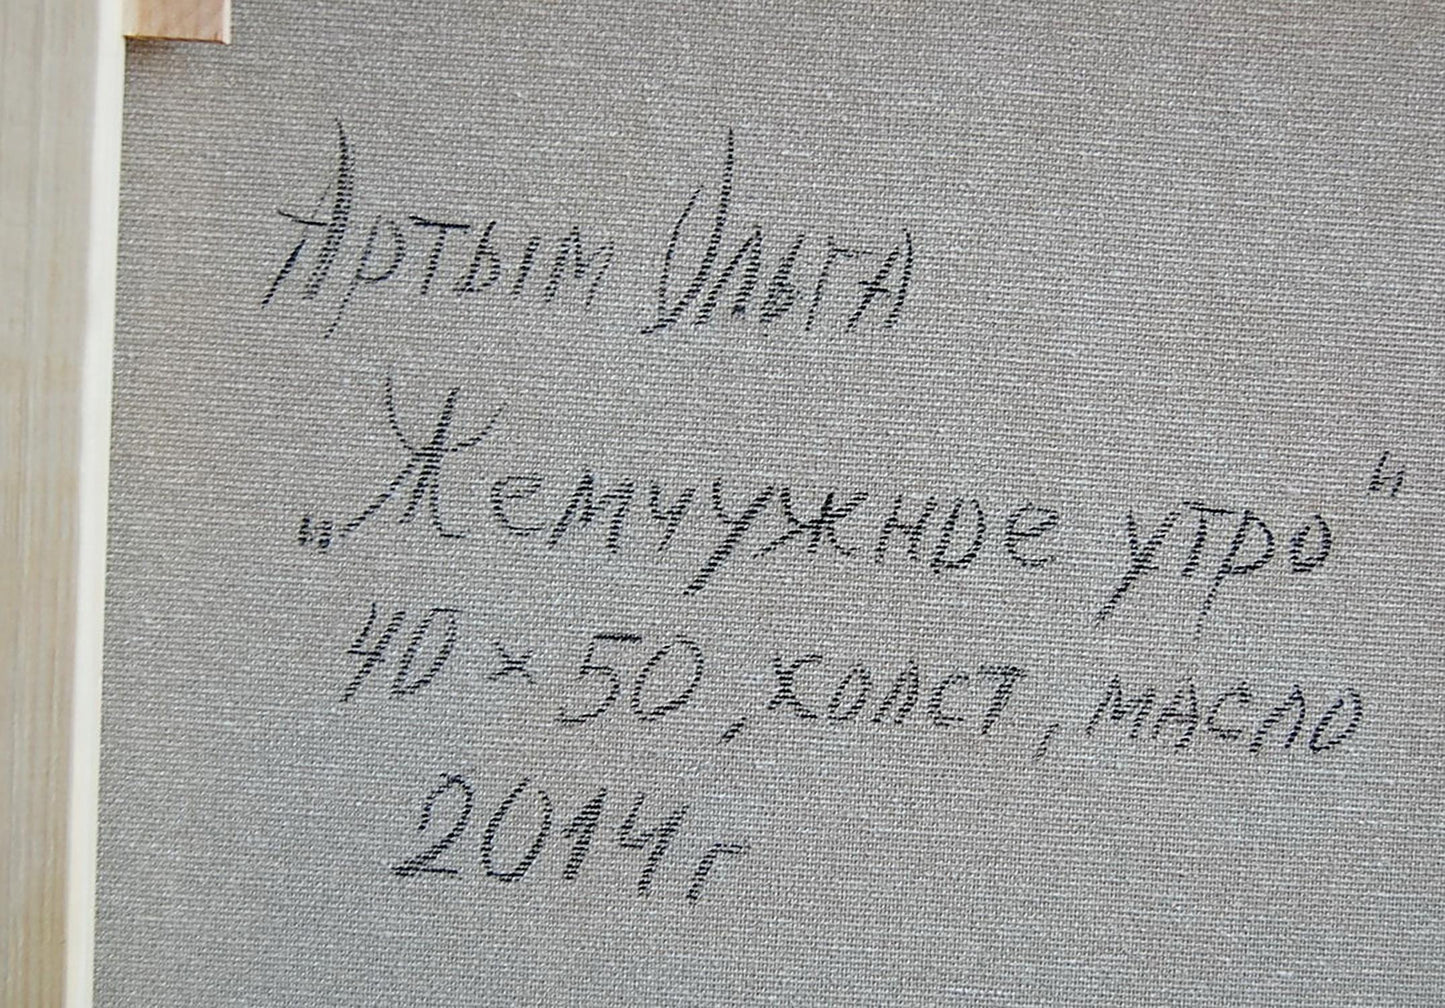 Артым Ольга
„Жемчужное утро"
40 × 50, холст, масло
2014г